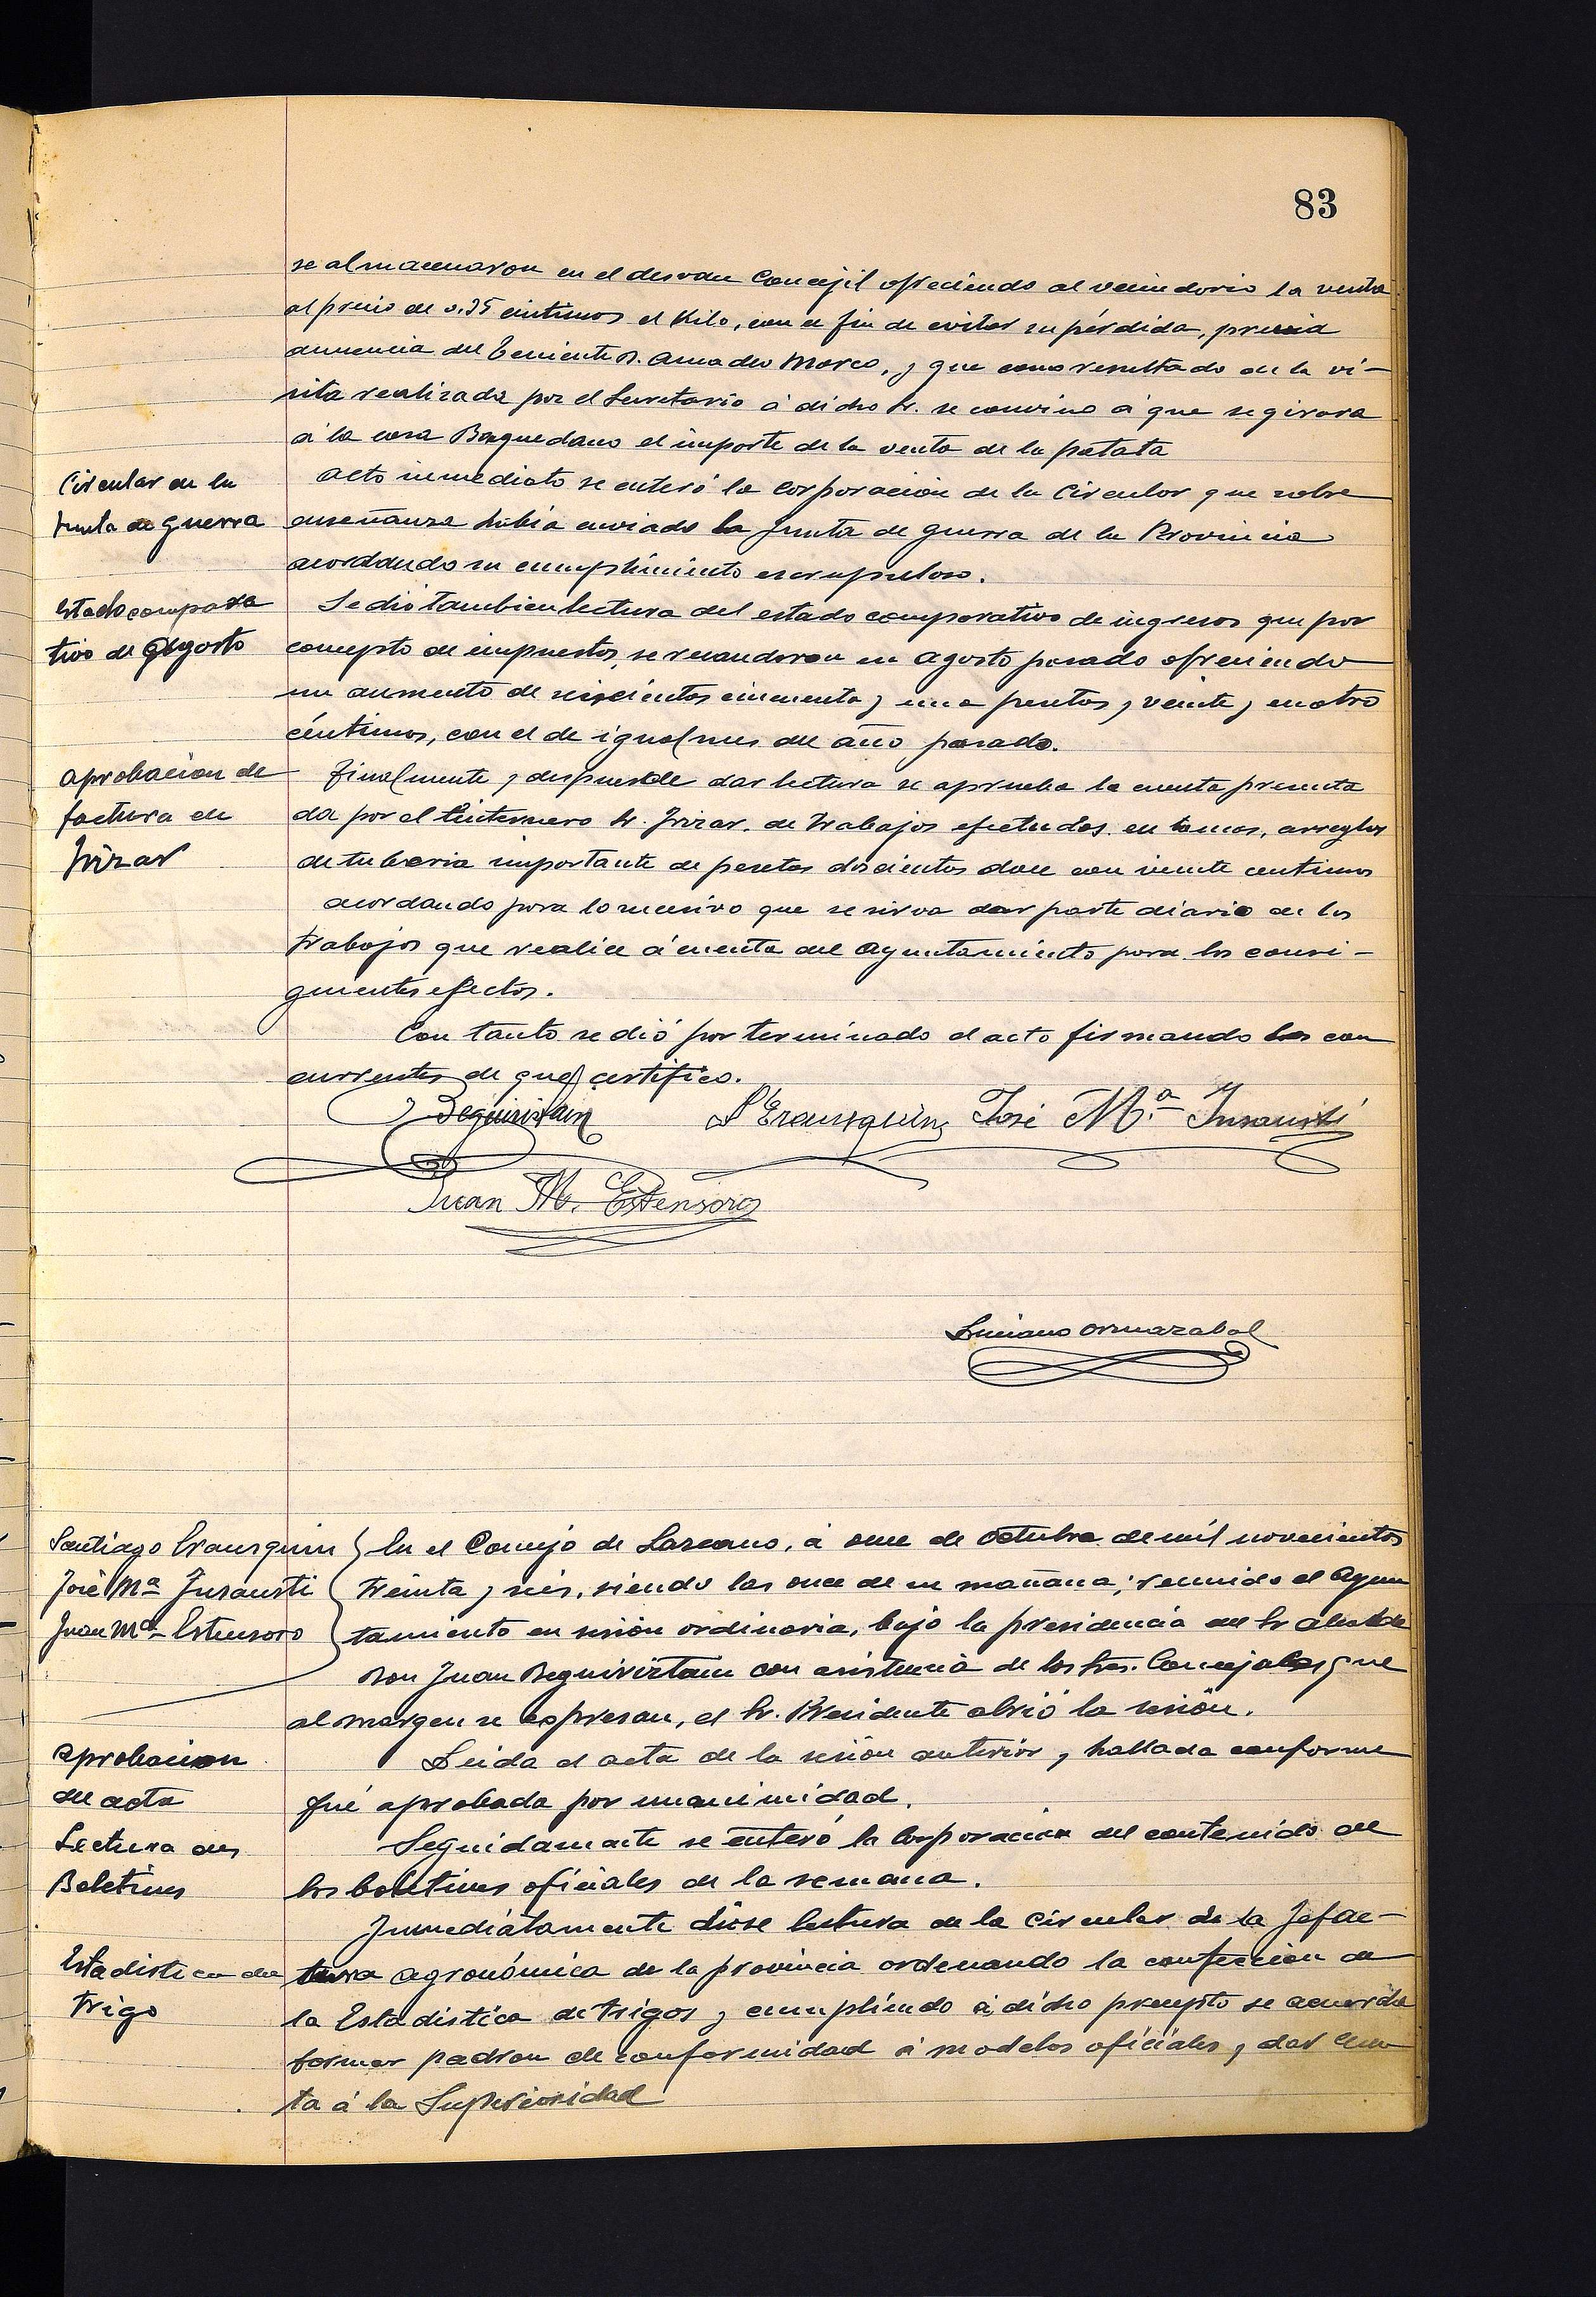 83
se almacenaron en el desvan Concejil ofreciendo al vecindorio la venta
al precio de 0.35 centimos el Kilo, con el fin de evitar su pérdida, previa
anuencia del Teniente D. Amadeo Marco, y que como resultado de la vi-
sita realizada por el Secretario á dicho Sr. se convino á que se girara
á la casa Baquedano el importe de la venta de la patata
Circular de la
Junta de Guerra
Acto inmediato se enteró la Corporación de la Circular que sobre
enseñanza había enviado la Junta de Guerra de la Provincia
acordando su cumplimiento escrupuloso.
Estado compara
tivo de Agosto
Se dió tambien lectura del estado comparativo de ingresos que por
concepto de impuestos, se recaudaron en Agosto pasado ofreciendo
un aumento de seiscientas cincuenta y una pesetas y veinte y cuatro
céntimos, con el de igual mes del año pasado.
Aprobación de
factura de
Irizar
Finalmente y despues de dar lectura se aprueba la cuenta presenta
da por el linternero Sr. Irizar. de trabajos efectuados en tomas, arreglos
de tuberia importante de pesetas doscientos doce con veinte centimos
acordando para lo sucesivo que se sirva dar parte diario de los
trabajos que realice á cuenta del Ayuntamiento para los consi-
guientes efectos.
Con tanto se dió por terminado el acto firmando los con
currentes de que certifico.
Beguiristain S. Erausquin José Mª Insausti
Juan M. Estensoro
Luciano Ormazabal
Santiago Erausquin
José Mª Insausti
Juan Mª Estensoro
En el Concejo de Lazcano, á once de Octubre de mil novecientos
treinta y seis, siendo las once de su mañana; reunido el Ayun
tamiento en sesión ordinaria, bajo la presidencia del Sr Alcalde
Don Juan Beguiristain con asistencia de los Sres. Concejales que
al margen se expresan, el Sr. Presidente abrió la sesión.
Aprobacion
del acta
Leida el acta de la sesión anterior y hallada conforme
fué aprobada por unanimidad.
Lectura de
Boletines
Seguidamente se enteró la Corporación del contenido de
los boletines oficiales de la semana.
Inmediatamente dióse lectura de la Circular de la Jefac-
Estadistica de
trigo
tura agronómica de la provincia ordenando la confección de
la Estadistica de trigos y cumpliendo á dicho precepto se acuerda
formar padron de conformidad á modelos oficiales y dar cuen
ta á la Superioridad